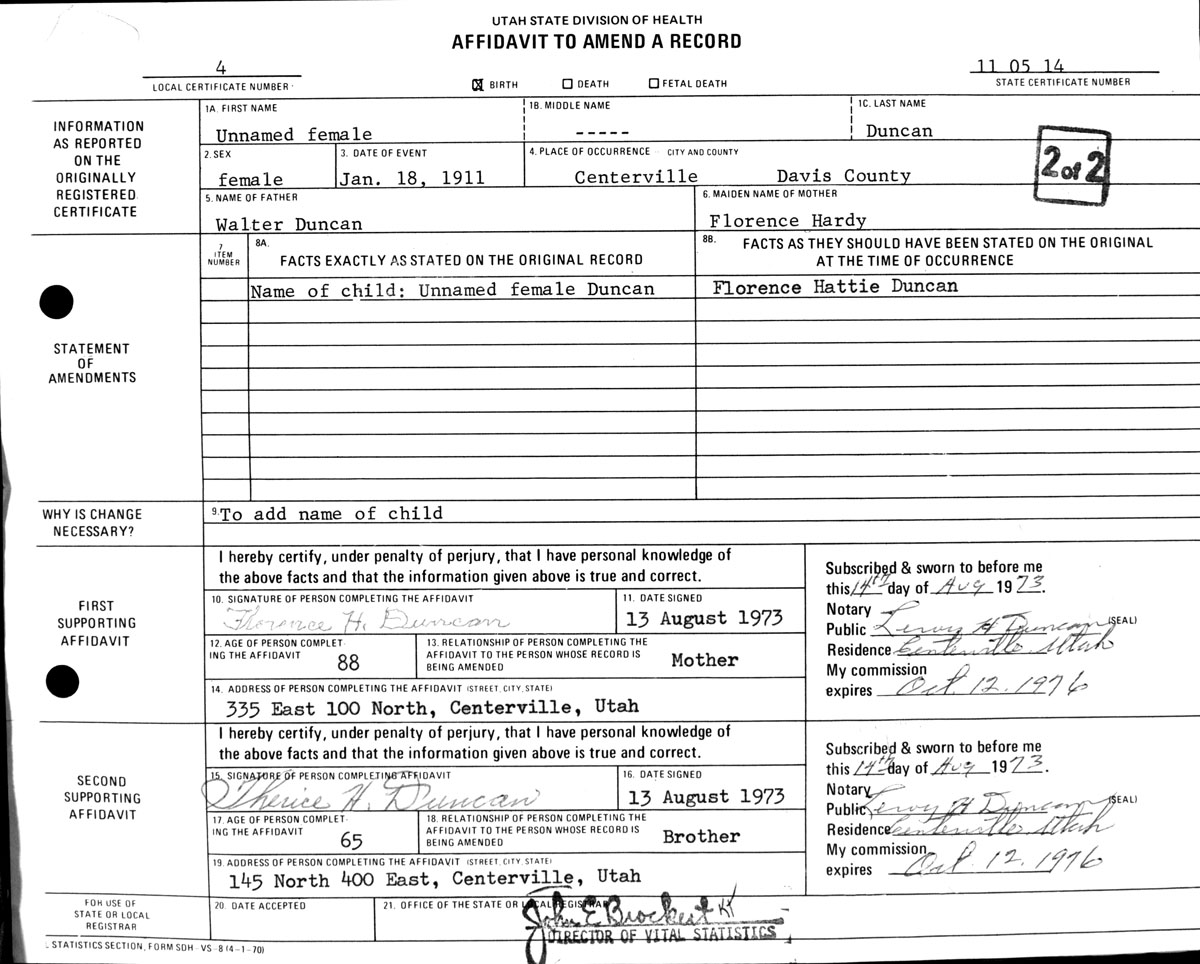 UTAH STATE DIVISION OF HEALTH
AFFIDAVIT TO AMEND A RECORD
4
LOCAL CERTIFICATE NUMBER
☒ BIRTH ☐ DEATH ☐ FETAL DEATH
11 05 14
STATE CERTIFICATE NUMBER
INFORMATION
AS REPORTED
ON THE
ORIGINALLY
REGISTERED
CERTIFICATE
1A. FIRST NAME
Unnamed female
1B. MIDDLE NAME
-----
1C. LAST NAME
Duncan
2. SEX
female
3. DATE OF EVENT
Jan. 18, 1911
4. PLACE OF OCCURRENCE - CITY AND COUNTY
Centerville Davis County
2 of 2
5. NAME OF FATHER
Walter Duncan
6. MAIDEN NAME OF MOTHER
Florence Hardy
STATEMENT
OF
AMENDMENTS
7
ITEM
NUMBER
8A.
FACTS EXACTLY AS STATED ON THE ORIGINAL RECORD
8B. FACTS AS THEY SHOULD HAVE BEEN STATED ON THE ORIGINAL
AT THE TIME OF OCCURRENCE
Name of child: Unnamed female Duncan
Florence Hattie Duncan
WHY IS CHANGE
NECESSARY?
9. To add name of child
FIRST
SUPPORTING
AFFIDAVIT
I hereby certify, under penalty of perjury, that I have personal knowledge of
the above facts and that the information given above is true and correct.
10. SIGNATURE OF PERSON COMPLETING THE AFFIDAVIT
Florence H. Duncan
11. DATE SIGNED
13 August 1973
12. AGE OF PERSON COMPLET-
ING THE AFFIDAVIT 88
13. RELATIONSHIP OF PERSON COMPLETING THE
AFFIDAVIT TO THE PERSON WHOSE RECORD IS
BEING AMENDED Mother
14. ADDRESS OF PERSON COMPLETING THE AFFIDAVIT (STREET, CITY, STATE)
335 East 100 North, Centerville, Utah
Subscribed & sworn to before me
this 14th day of Aug 1973.
Notary
Public Leroy H Duncan (SEAL)
Residence Centerville Utah
My commission
expires Oct. 12. 1976
SECOND
SUPPORTING
AFFIDAVIT
I hereby certify, under penalty of perjury, that I have personal knowledge of
the above facts and that the information given above is true and correct.
15. SIGNATURE OF PERSON COMPLETING AFFIDAVIT
Therice H. Duncan
16. DATE SIGNED
13 August 1973
17. AGE OF PERSON COMPLET-
ING THE AFFIDAVIT 65
18. RELATIONSHIP OF PERSON COMPLETING THE
AFFIDAVIT TO THE PERSON WHOSE RECORD IS
BEING AMENDED Brother
19. ADDRESS OF PERSON COMPLETING THE AFFIDAVIT (STREET, CITY, STATE)
145 North 400 East, Centerville, Utah
Subscribed & sworn to before me
this 14th day of Aug 1973.
Notary
Public Leroy H Duncan (SEAL)
Residence Centerville Utah
My commission
expires Oct. 12. 1976
FOR USE OF
STATE OR LOCAL
REGISTRAR
20. DATE ACCEPTED
21. OFFICE OF THE STATE OR LOCAL REGISTRAR
John E Brockert
DIRECTOR OF VITAL STATISTICS
STATISTICS SECTION, FORM SDH - VS - 8 (4-1-70)